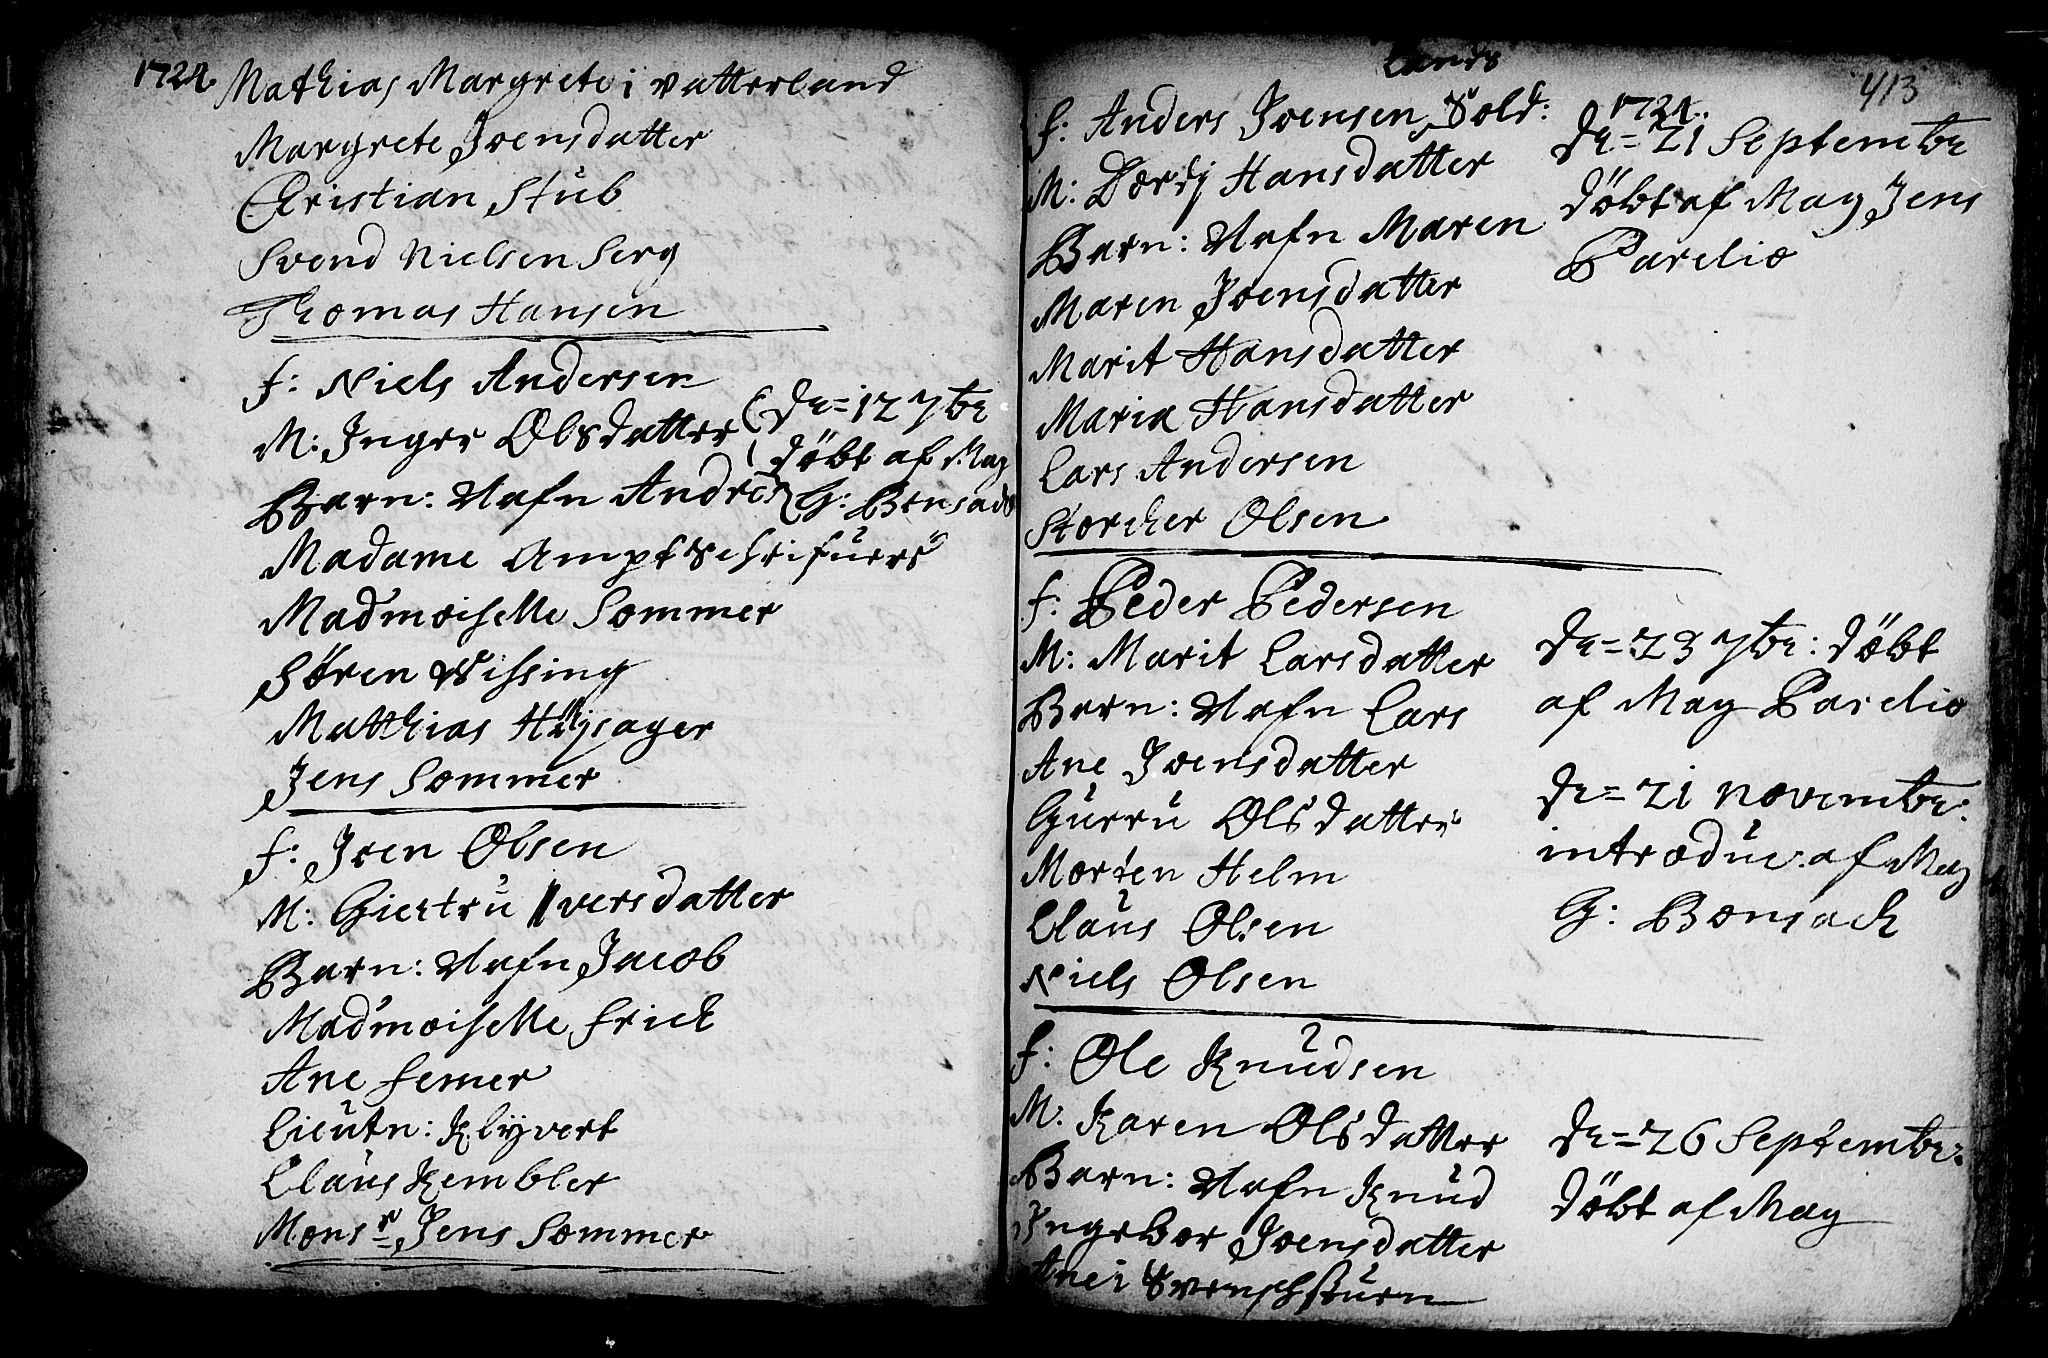 1724.
Mathias Margrete i vatterland
Margrete Joensdatter
Christian Stub
Svend Nielsen Serg
Thomas Hansen
f: Niels Andersen
M: Inger Olsdatter
Barn: Nafn Andres
Dn= 12 7br
döbt af Mag
G: Bonsach
Madame Amptschrifuers
Madmoiselle Sommer
Sören Wissing
Matthias Höysager
Jens Sommer
f: Joen Olsen
M: Giertru Iversdatter
Barn: Nafn Jacob
Madmoiselle Frich
Ane Femer
Lieutn: Klÿvert
Claus Kembler
Monsr Jens Sommer
413
Lands
f: Anders Joensen Sold:
M: Dordj Hansdatter
Barn: Nafn Maren
Maren Joensdatter
Marit Hansdatter
Maria Hansdatter
Lars Andersen
Storcher Olsen
1724.
Dn= 21 Septembr
döbt af Mag Jens
Parelio
f: Peder Pedersen
M: Marit Larsdatter
Barn: Nafn Lars
Ane Joensdatter
Gurru Olsdatter
Morten Helm
Claus Olsen
Niels Olsen
Dn= 23 7br: döbt
af Mag Parelio
Dn= 21 novembr:
introduc: af Mag
G: Bonsach
f: Ole Knudsen
M: Karen Olsdatter
Barn: Nafn Knud
Ingebor Joensdatter
Ane i
Dn= 26 Septembr:
döbt af Mag